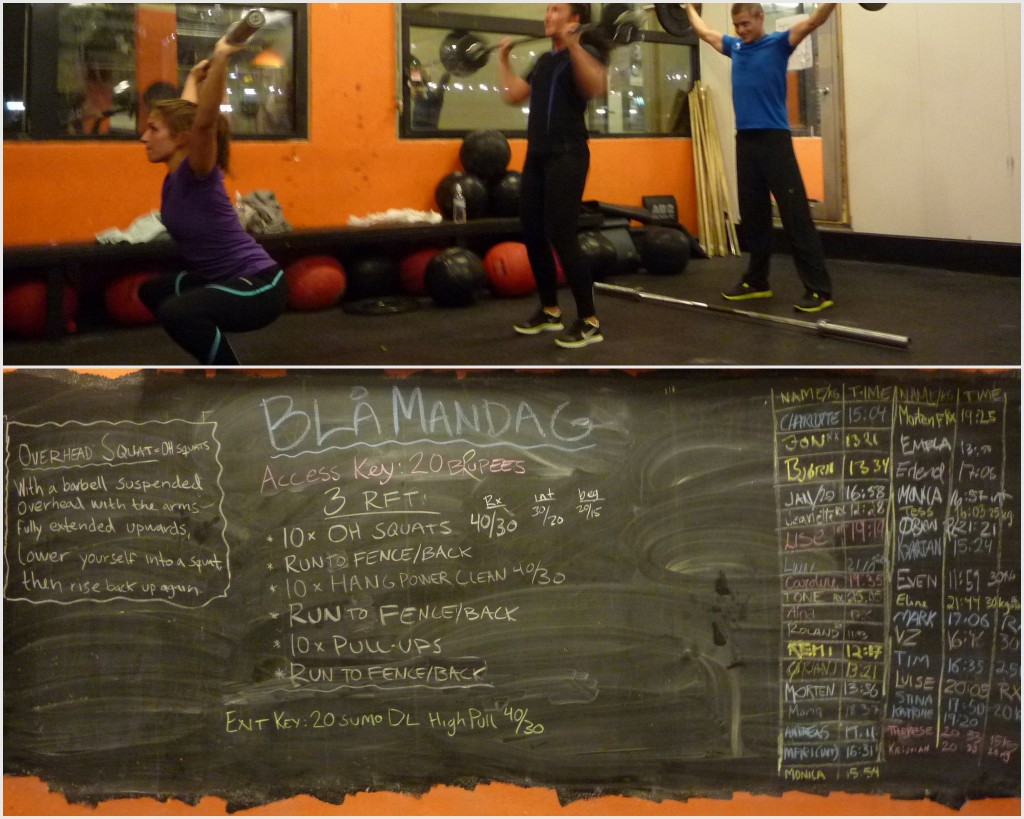 OVERHEAD SQUAT = OH SQUATS
With a barbell suspended
overhead with the arms
fully extended upwards,
lower yourself into a squat
then rise back up again.
BLÅ MANDAG
Access Key: 20 BURPEES
3 RFT:
Rx int beg
40/30 30/20 20/15
* 10x OH SQUATS
* RUN TO FENCE/BACK
* 10x HANG POWER CLEAN 40/30
* RUN TO FENCE/BACK
* 10x PULL-UPS
* RUN TO FENCE/BACK
EXIT KEY: 20 SUMO DL High Pull 40/30
NAME/KG TIME NAME/KG TIME
CHARLOTTE 15:04 Morten 14:25
JON 13:21 EMBLA
Bjørn 13:34 Erlend 17:06
JAN/20 16:58 MONICA 16:57 int
Tess 16:03
LISE 21:21
15:24
Caroline 19:35 EVEN 11:59
TONE Eline 21:44 30kg
MARK 17:06
ROLAND VZ
REMI 12:17 TIM 16:35
13:21 LUISE 20:05 RX
MORTEN 13:56 STINA 17:50
Maria 18:37 KATRINE 19:20
ANDREAS 17:11 Therese 20:33 15kg
16:31 Kristian
MONICA 15:54